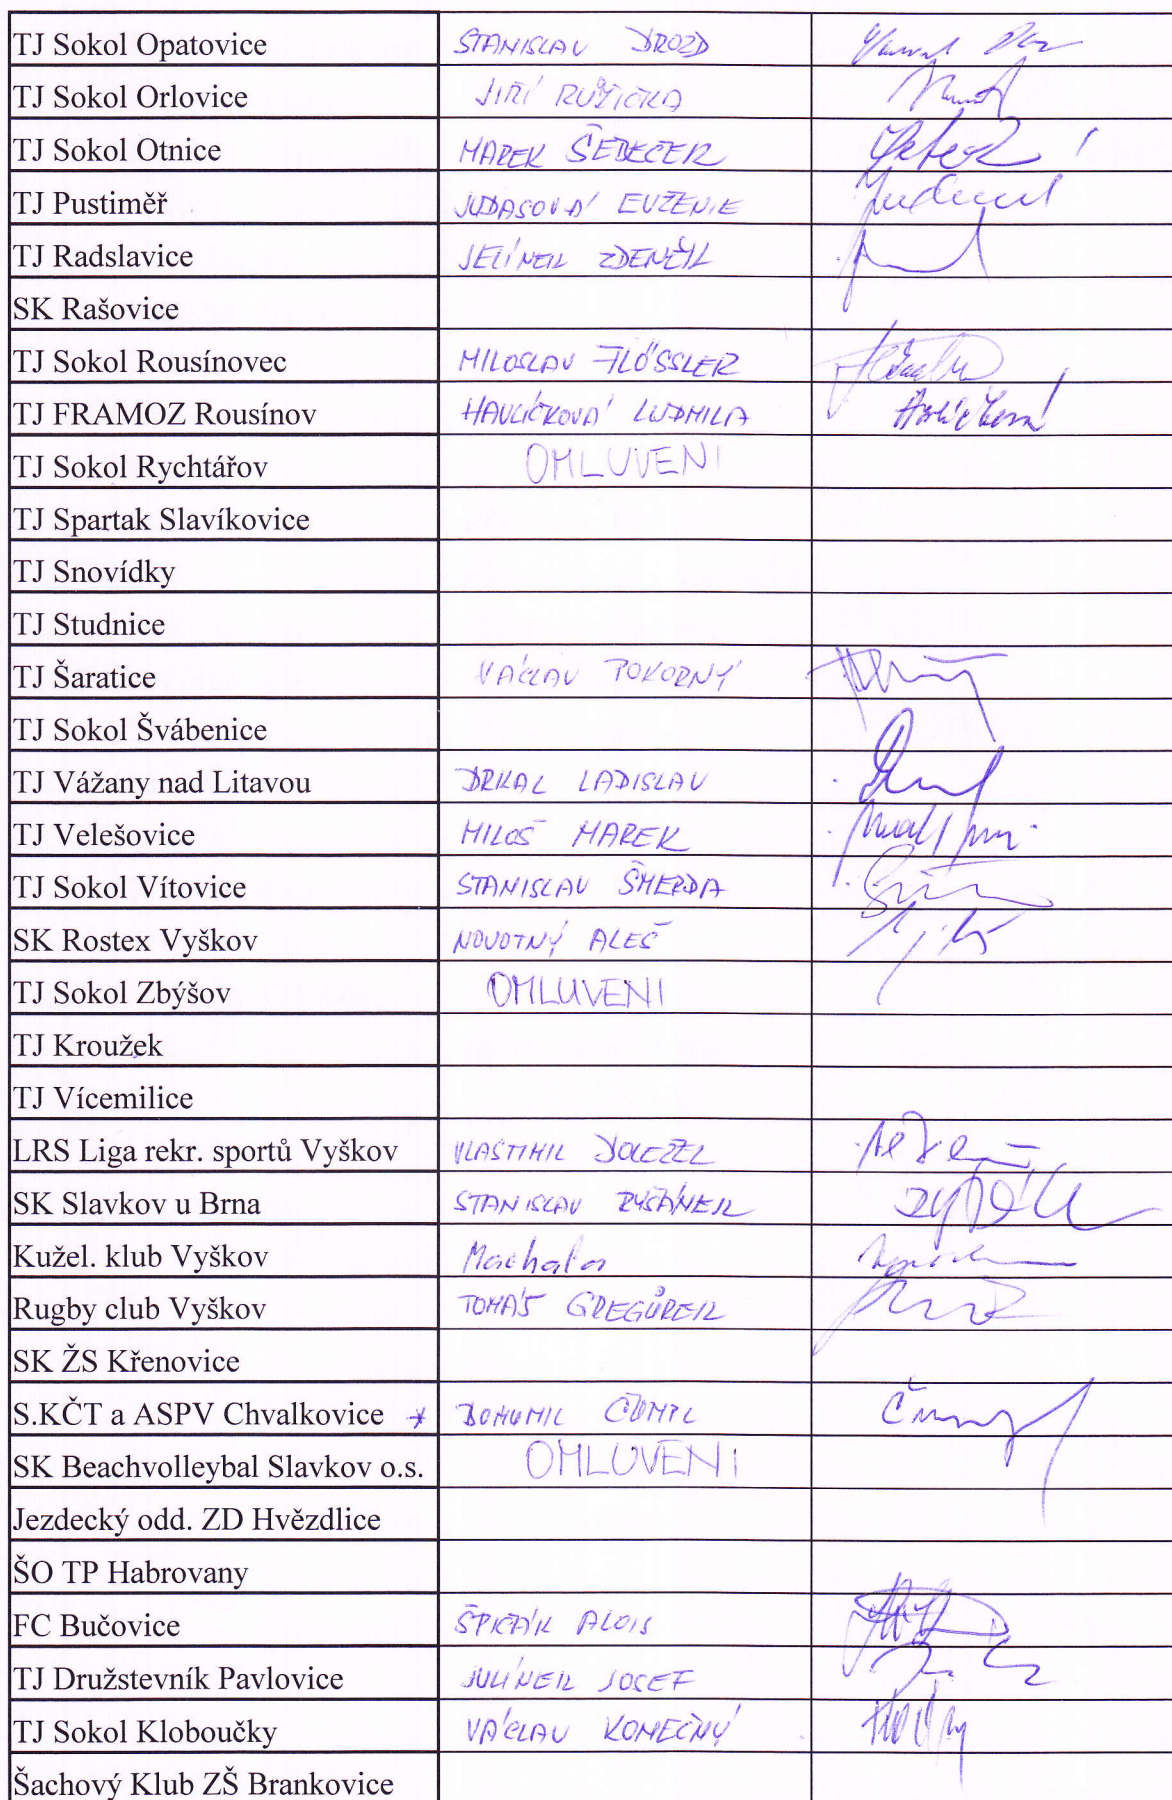 TJ Sokol Opatovice STANISLAV DROZD
TJ Sokol Orlovice JIŘÍ RŮŽIČKA
TJ Sokol Otnice MAREK ŠEDECER
TJ Pustiměř JUDASOVÁ EUŽENIE
TJ Radslavice JELÍNEK ZDENĚK
SK Rašovice
TJ Sokol Rousínovec MILOSLAV FLÖSSLER
TJ FRAMOZ Rousínov HAVLÍČKOVÁ LUDMILA Havlíčková
TJ Sokol Rychtářov OMLUVENI
TJ Spartak Slavíkovice
TJ Snovídky
TJ Studnice
TJ Šaratice VÁCLAV POKORNÝ
TJ Sokol Švábenice
TJ Vážany nad Litavou DRKAL LADISLAV
TJ Velešovice MILOŠ MAREK
TJ Sokol Vítovice STANISLAV ŠMERDA
SK Rostex Vyškov NOVOTNÝ ALEŠ
TJ Sokol Zbýšov OMLUVENI
TJ Kroužek
TJ Vícemilice
LRS Liga rekr. sportů Vyškov VLASTIMIL DOLEŽEL
SK Slavkov u Brna STANISLAV
Kužel. klub Vyškov Machala
Rugby club Vyškov TOMÁŠ GREGŮREK
SK ŽS Křenovice
S.KČT a ASPV Chvalkovice * BOHUMIL
SK Beachvolleybal Slavkov o.s. OMLUVENI
Jezdecký odd. ZD Hvězdlice
ŠO TP Habrovany
FC Bučovice ALOIS
TJ Družstevník Pavlovice JULÍNEK JOSEF
TJ Sokol Kloboučky VÁCLAV KONEČNÝ
Šachový Klub ZŠ Brankovice